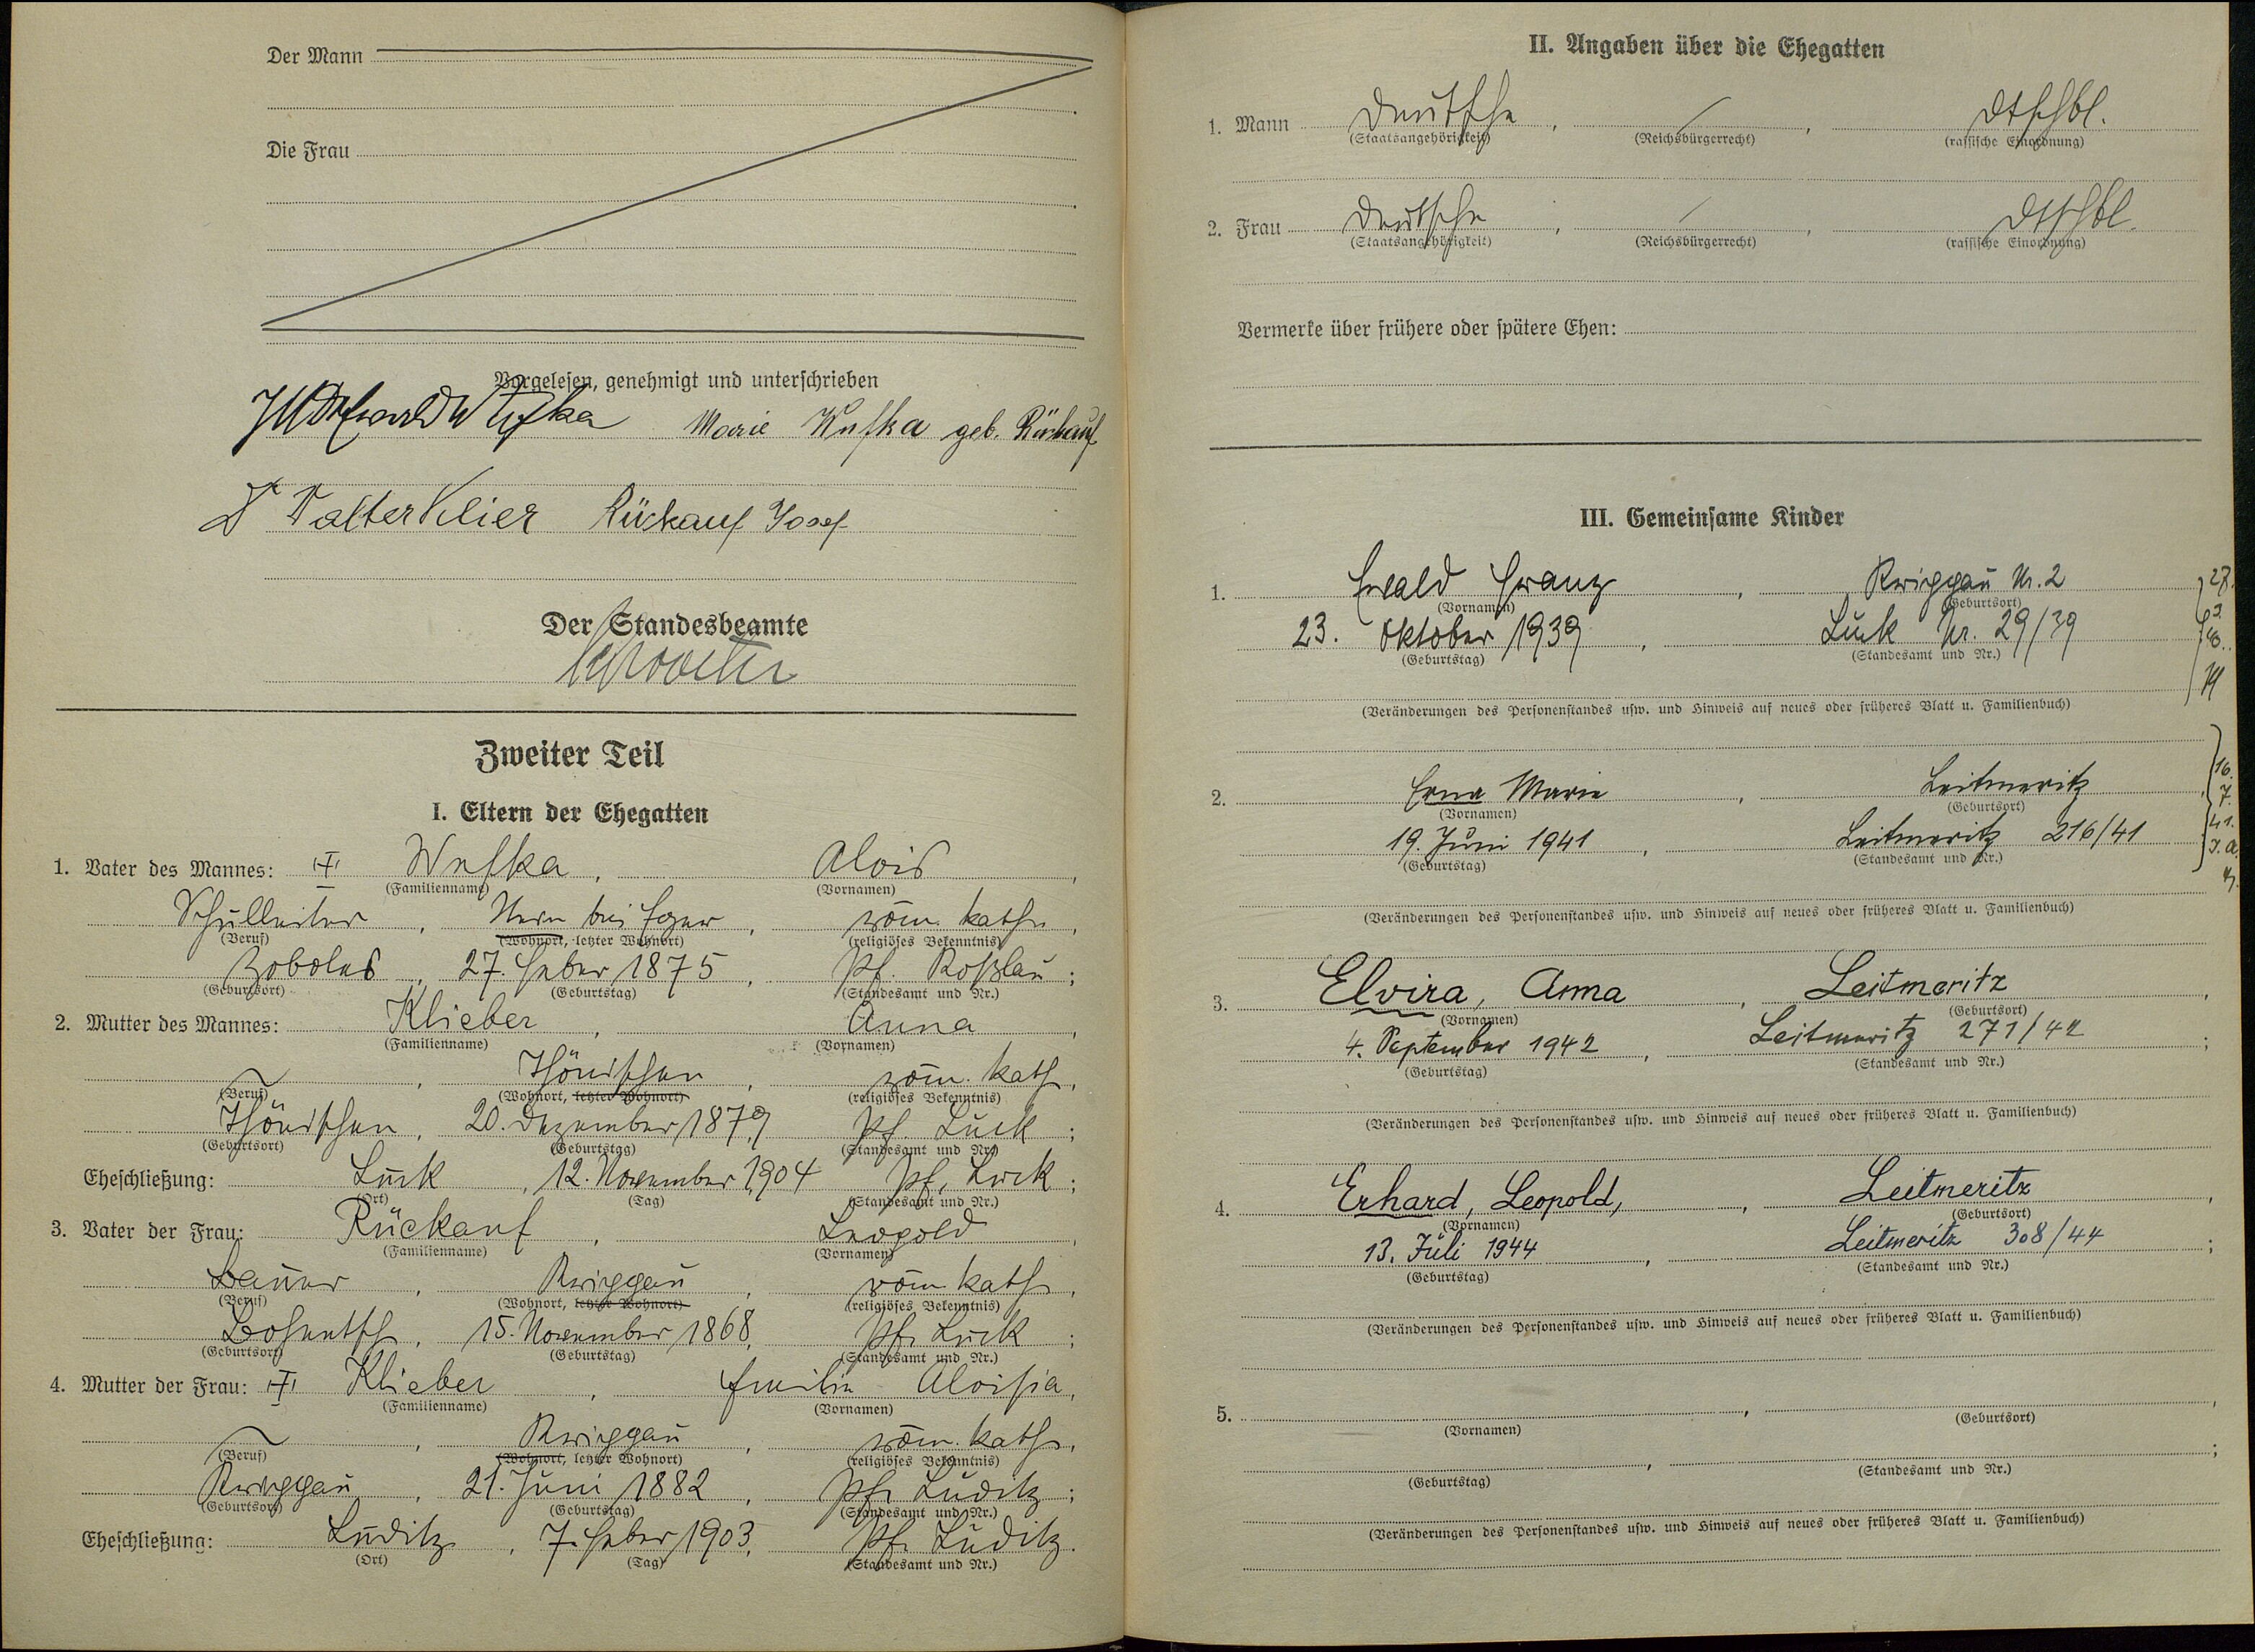 Der Mann
Die Frau
Vorgelesen, genehmigt und unterschrieben
Marie Wufka geb. Rückauf
Dr Walter Klier Rückauf Josef
Der Standesbeamte
Zweiter Teil
I. Eltern der Ehegatten
1. Vater des Mannes: Wufka, Alois,
(Familienname) (Vornamen)
Schulleiter, bei Eger, röm. kath.,
(Beruf) (Wohnort, letzter Wohnort) (religiöses Bekenntnis)
Zoboles, 27. Feber 1875, Pf. Koßlau;
(Geburtsort) (Geburtstag) (Standesamt und Nr.)
2. Mutter des Mannes: Klieber, Anna,
(Familienname) (Vornamen)
Thönischen, röm. kath.,
(Beruf) (Wohnort, letzter Wohnort) (religiöses Bekenntnis)
Thönischen, 20. Dezember 1879, Pf. Luck;
(Geburtsort) (Geburtstag) (Standesamt und Nr.)
Eheschließung: Luck, 12. November 1904 Pf. Luck;
(Ort) (Tag) (Standesamt und Nr.)
3. Vater der Frau: Rückauf, Leopold,
(Familienname) (Vornamen)
Bauer, Kwiggau, röm. kath.,
(Beruf) (Wohnort, letzter Wohnort) (religiöses Bekenntnis)
Bohentsch, 15. November 1868, Pf. Luck;
(Geburtsort) (Geburtstag) (Standesamt und Nr.)
4. Mutter der Frau: Klieber, Emilie Aloisia,
(Familienname) (Vornamen)
Kwiggau, röm. kath.,
(Beruf) (Wohnort, letzter Wohnort) (religiöses Bekenntnis)
Kwiggau, 21. Juni 1882, Pf. Luditz;
(Geburtsort) (Geburtstag) (Standesamt und Nr.)
Eheschließung: Luditz, 7. Feber 1903, Pf. Luditz.
(Ort) (Tag) (Standesamt und Nr.)
II. Angaben über die Ehegatten
1. Mann Deutsche, / , dtschbl.
(Staatsangehörigkeit) (Reichsbürgerrecht) (rassische Einordnung)
2. Frau Deutsche, / , dtschbl.
(Staatsangehörigkeit) (Reichsbürgerrecht) (rassische Einordnung)
Vermerke über frühere oder spätere Ehen:
III. Gemeinsame Kinder
1. Ewald Franz, Kwiggau Nr. 2
(Vornamen) (Geburtsort)
23. Oktober 1939, Luck Nr. 29/39
(Geburtstag) (Standesamt und Nr.)
(Veränderungen des Personenstandes usw. und Hinweis auf neues oder früheres Blatt u. Familienbuch)
2. Erna Marie, Leitmeritz,
(Vornamen) (Geburtsort)
19. Juni 1941, Leitmeritz 216/41
(Geburtstag) (Standesamt und Nr.)
16.
7.
41.
(Veränderungen des Personenstandes usw. und Hinweis auf neues oder früheres Blatt u. Familienbuch)
3. Elvira, Anna, Leitmeritz,
(Vornamen) (Geburtsort)
4. September 1942, Leitmeritz 271/42;
(Geburtstag) (Standesamt und Nr.)
(Veränderungen des Personenstandes usw. und Hinweis auf neues oder früheres Blatt u. Familienbuch)
4. Erhard, Leopold, , Leitmeritz,
(Vornamen) (Geburtsort)
13. Juli 1944, Leitmeritz 308/44;
(Geburtstag) (Standesamt und Nr.)
(Veränderungen des Personenstandes usw. und Hinweis auf neues oder früheres Blatt u. Familienbuch)
5. , ,
(Vornamen) (Geburtsort)
, ;
(Geburtstag) (Standesamt und Nr.)
(Veränderungen des Personenstandes usw. und Hinweis auf neues oder früheres Blatt u. Familienbuch)